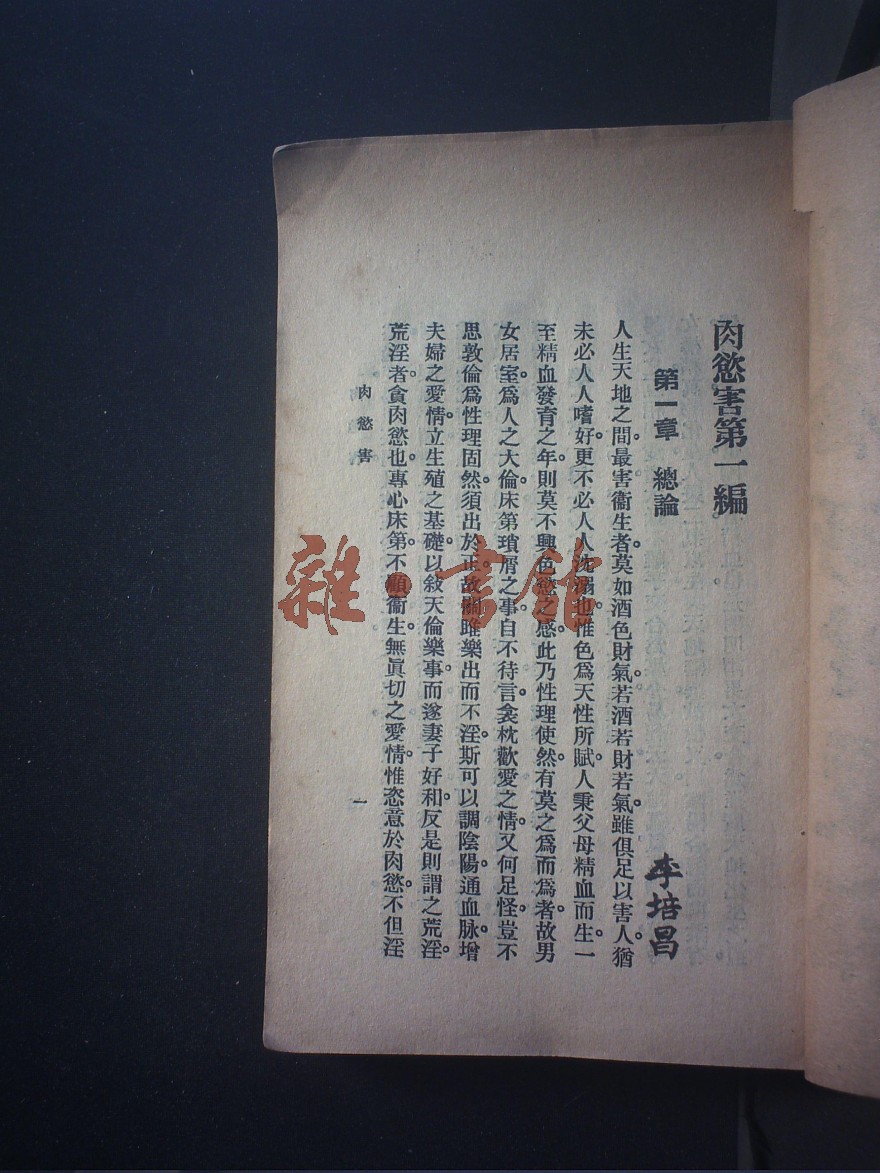 肉慾害第一編
第一章　總論
李培昌
人生天地之間。最害衞生者。莫如酒色財氣。若酒若財若氣。雖俱足以害人。猶
未必人人嗜好。更不必人人沈溺也。惟色爲天性所賦。人秉父母精血而生。一
至精血發育之年。則莫不興色慾之感。此乃性理使然。有莫之爲而爲者。故男
女居室。爲人之大倫。床第瑣屑之事。自不待言。衾枕歡愛之情。又何足怪。豈不
思敦倫爲性理固然。須出於正。故關雎樂出而不淫。斯可以調陰陽。通血脉。增
夫婦之愛情。立生殖之基礎。以敍天倫樂事。而遂妻子好和。反是則謂之荒淫。
荒淫者。貪肉慾也。專心床第。不顧衞生。無眞切之愛情。惟恣意於肉慾。不但淫
肉慾害
一
雜·書館